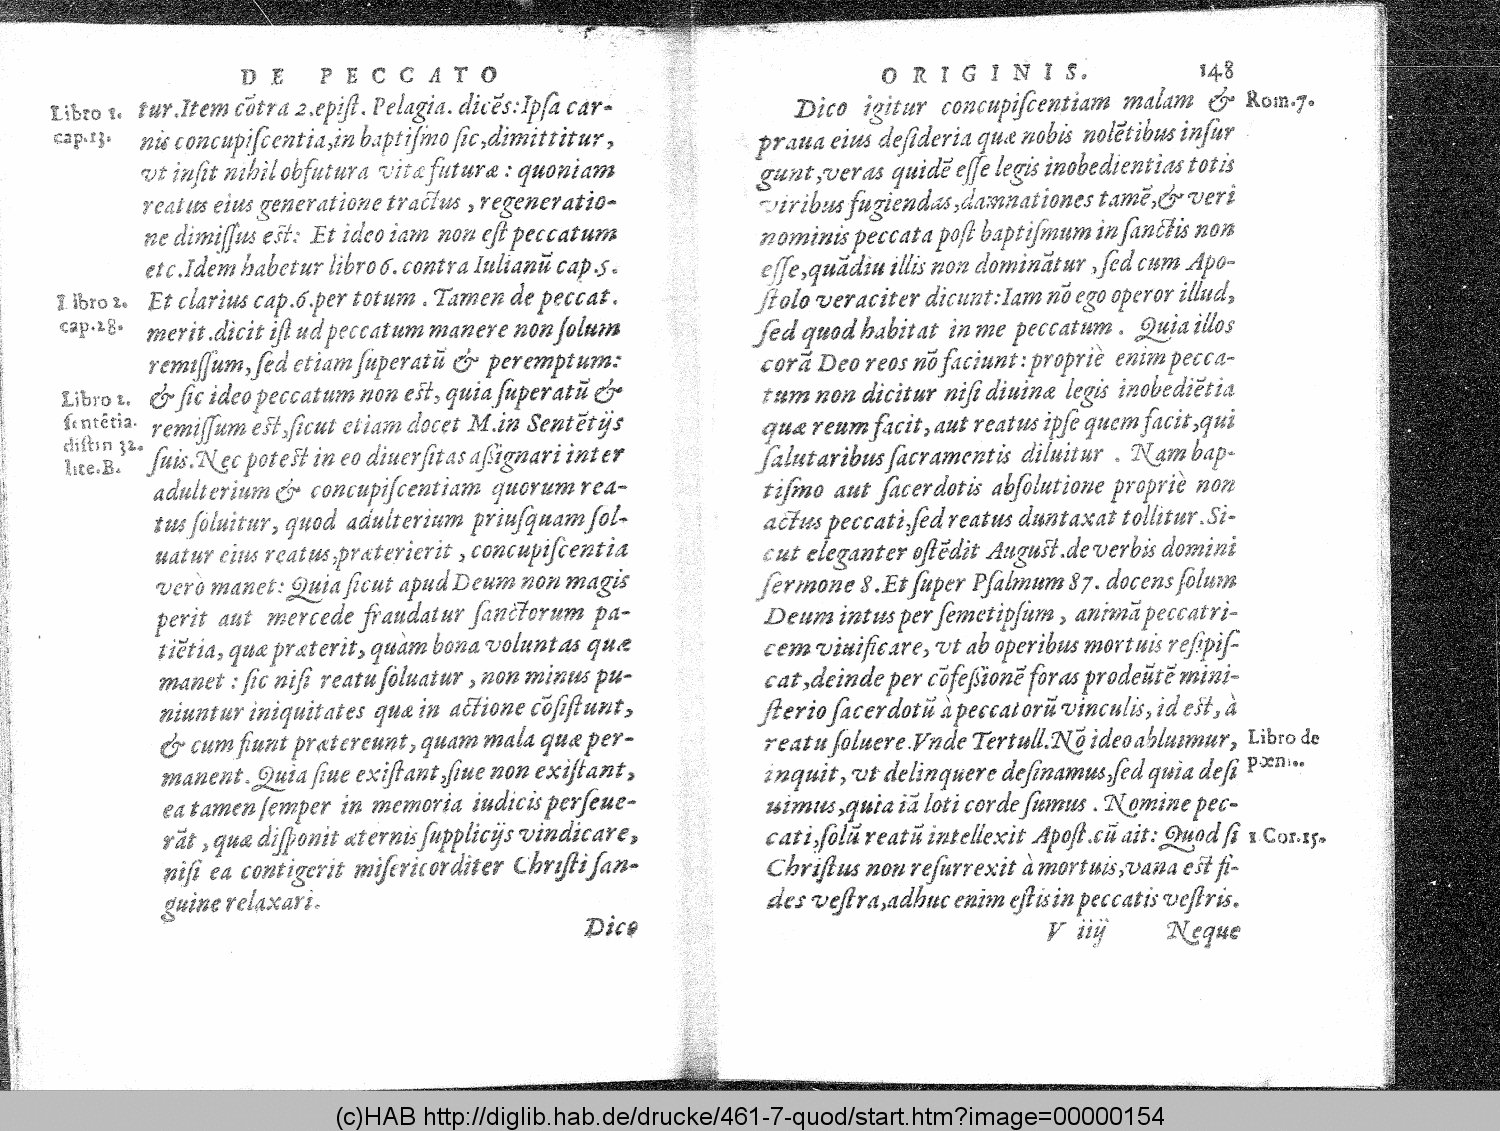 DE PECCATO
Libro 1.
cap.13.
tur.Item cõtra 2.epiſt. Pelagia. dicẽs:Ipſa car-
nis concupiſcentia,in baptiſmo ſic,dimittitur,
vt inſit nihil obfutura vitæ futuræ : quoniam
reatus eius generatione tractus , regeneratio-
ne dimiſſus est: Et ideo iam non eſt peccatum
etc.Idem habetur libro 6. contra Iulianũ cap.5.
Libro 2.
cap.28.
Et clarius cap.6.per totum . Tamen de peccat.
merit.dicit iſtud peccatum manere non ſolum
remiſſum,ſed etiam ſuperatũ & peremptum:
Libro 2.
ſentẽtia.
diſtin 32.
lite.B.
& ſic ideo peccatum non est, quia ſuperatũ &
remiſſum est,ſicut etiam docet M.in Sentẽtijs
ſuis.Nec potest in eo diuerſitas aſſignari inter
adulterium & concupiſcentiam quorum rea-
tus ſoluitur, quod adulterium priuſquam ſol-
uatur eius reatus,præterierit , concupiſcentia
verò manet: Quia ſicut apud Deum non magis
perit aut mercede fraudatur ſanctorum pa-
tiẽtia, quæ præterit, quàm bona voluntas quæ
manet : ſic niſi reatu ſoluatur , non minus pu-
niuntur iniquitates quæ in actione cõſiſtunt,
& cum fiunt prætereunt, quam mala quæ per-
manent. Quia ſiue exiſtant,ſiue non exiſtant,
ea tamen ſemper in memoria iudicis perſeue-
rãt , quæ diſponit æternis ſupplicijs vindicare,
niſi ea contigerit miſericorditer Chriſti ſan-
guine relaxari.
Dico
ORIGINIS.
148
Dico igitur concupiſcentiam malam &
Rom.7.
praua eius deſideria quæ nobis nolẽtibus inſur
gunt,veras quidẽ eſſe legis inobedientias totis
viribus fugiendas,damnationes tamẽ,& veri
nominis peccata poſt baptiſmum in ſanctis non
eſſe,quãdiu illis non dominãtur ,ſed cum Apo-
ſtolo veraciter dicunt:Iam nõ ego operor illud,
ſed quod habitat in me peccatum . Quia illos
corã Deo reos nõ faciunt: propriè enim pecca-
tum non dicitur niſi diuinæ legis inobediẽtia
quæ reum facit, aut reatus ipſe quem facit,qui
ſalutaribus ſacramentis diluitur . Nam bap-
tiſmo aut ſacerdotis abſolutione propriè non
actus peccati,ſed reatus duntaxat tollitur.Si-
cut eleganter oſtẽdit August.de verbis domini
ſermone 8.Et ſuper Pſalmum 87. docens ſolum
Deum intus per ſemetipſum , animã peccatri-
cem viuificare, vt ab operibus mortuis reſipiſ-
cat,deinde per cõfeſſionẽ foras prodeũtẽ mini-
ſterio ſacerdotũ à peccatorũ vinculis, id est, à
reatu ſoluere.Vnde Tertull.Nõ ideo abluimur,
Libro de
pœni..
inquit, vt delinquere deſinamus,ſed quia deſi
uimus,quia iã loti corde ſumus . Nomine pec-
cati,ſolũ reatũ intellexit Apoſt.cũ ait: Quod ſi
1 Cor.15.
Chriſtus non reſurrexit à mortuis,vana est fi-
des veſtra,adhuc enim eſtis in peccatis veſtris.
V iiij
Neque
(c)HAB http://diglib.hab.de/drucke/461-7-quod/start.htm?image=00000154